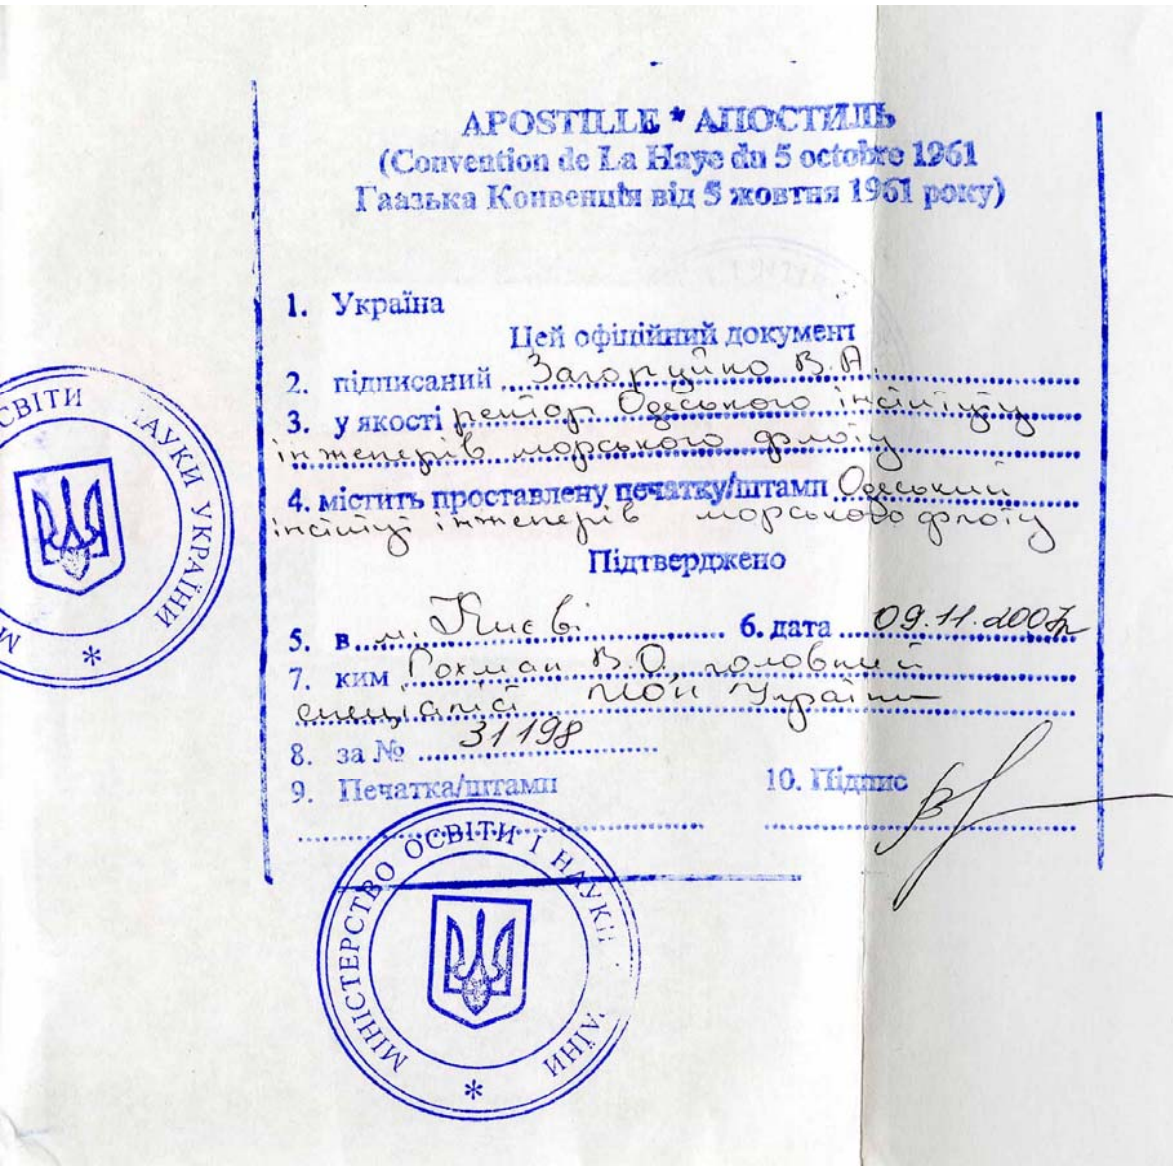 APOSTILLE * АПОСТИЛЬ
(Convention de La Haye du 5 octobre 1961
Гаазька Конвенція від 5 жовтня 1961 року)
1. Україна
Цей офіційний документ
2. підписаний Загоруйко В.А.
3. у якості ректор Одеського інституту
інженерів морського флоту
4. містить проставлену печатку/штамп Одеський
інститут інженерів морського флоту
Підтверджено
5. в м. Києві 6. дата 09.11.2007р
7. ким Рохман В.О. головний
спеціаліст МОН України
8. за № 31198
9. Печатка/штамп 10. Підпис
МІНІСТЕРСТВО ОСВІТИ І НАУКИ АЇНИ *
М СВІТИ НАУКИ УКРАЇНИ *